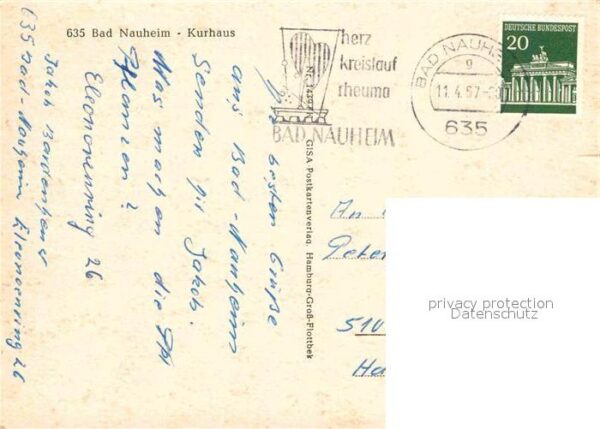 635 Bad Nauheim - Kurhaus
herz
kreislauf
rheuma
BAD NAUHEIM
BAD NAUHEIM
g
11.4.67
635
DEUTSCHE BUNDESPOST
20
besten Grüße
aus Bad-Nauheim
Senden dir Jakob.
Was machen die
Pflanzen?
Eleonorenring 26
Jakob
635 Bad-Nauheim Eleonorenring 26
GISA Postkartenverlag, Hamburg-Groß-Flottbek
An
Peter
510
privacy protection
Datenschutz